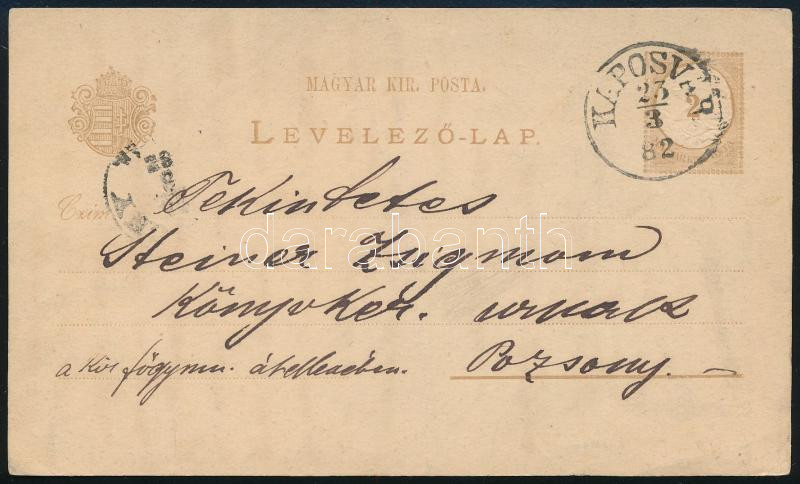 MAGYAR KIR. POSTA.
LEVELEZŐ-LAP.
KAPOSVÁR
23
3
82
2
Czím
Tekintetes
Steiner Zsigmom
Könyvker. urnak
a kir főgymn. átellenében.
Pozsony.
darabanth